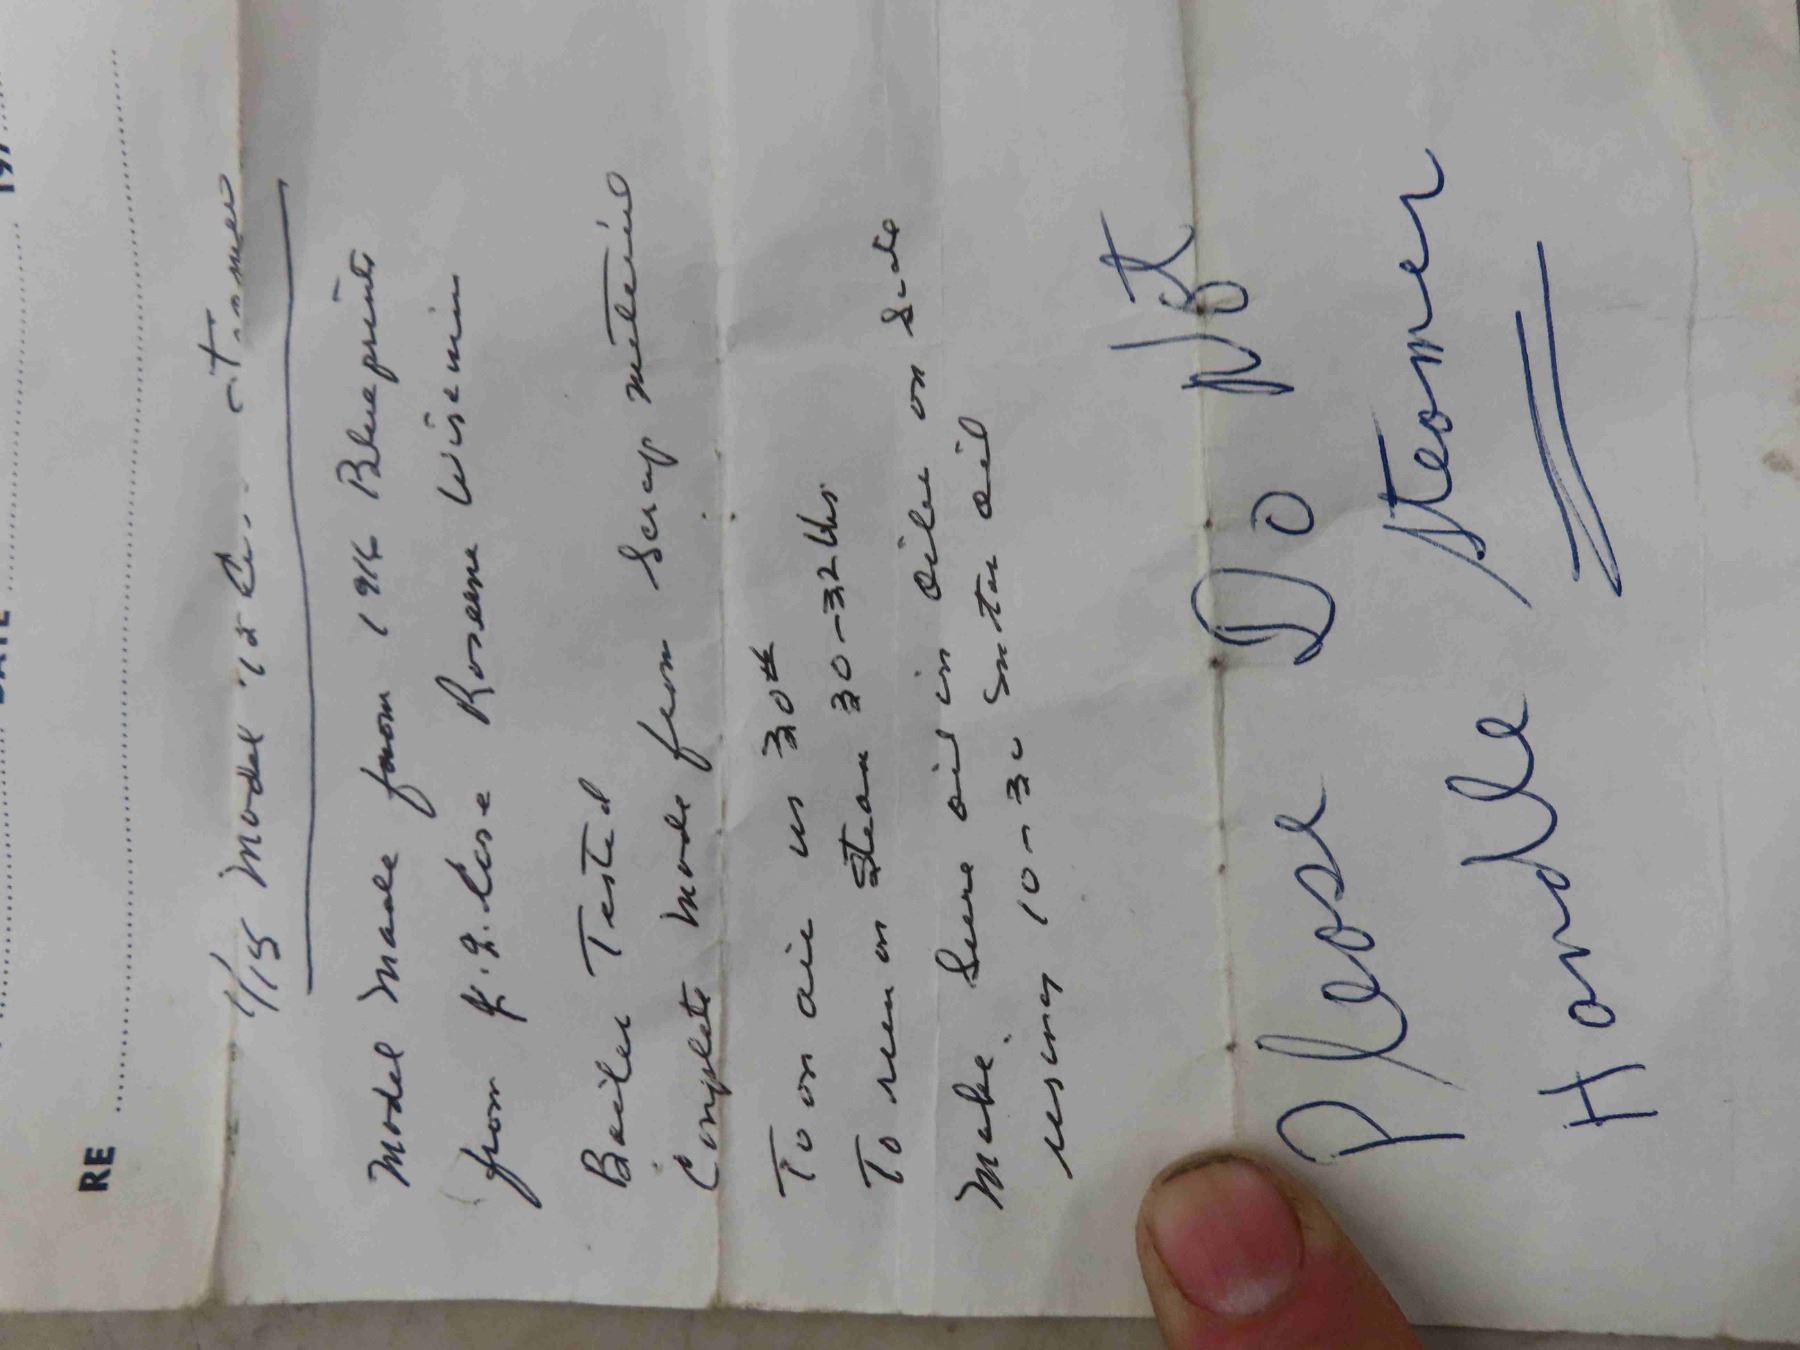 DATE 197
RE
1/15 Model
Model Made from 1916 Blueprints
from J.I. Case Rosene Wisemin
Boiler Tested
Complete Made from Scrap meterial
To on air us 30#
To run on Steam 30-32 lbs
Make Sure oil in oiler on Side
using 10-30 motor oil
Please Do Not
Handle Steamer